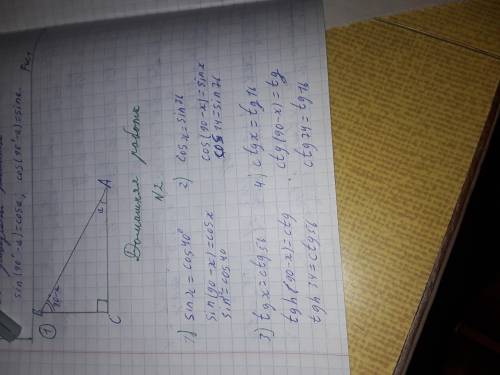 sin(90°-α)=cosα, cos(90°-α)=sinα.
Рис.1
1
B
90-α
α
A
C
Домашняя работа
N2
1) sin x = cos 40°
sin(90-x)=cosx
sin =cos 40
2) cos x = sin 76
cos(90-x)=sin x
cos 14=sin 76
3) tg x = ctg 56
tgh(90-x)=ctg
tgh 34=ctg56
4) ctg x = tg 16
ctg(90-x)=tg
ctg 74=tg 16